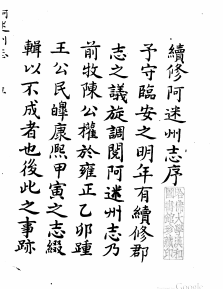 續修阿迷州志序
予守臨安之明年有續修郡
志之議旋調閱阿迷州志乃
前牧陳公權於雍正乙卯踵
王公民皡康熙甲寅之志綴
輯以不成者也後此之事跡
阿迷州志
Google